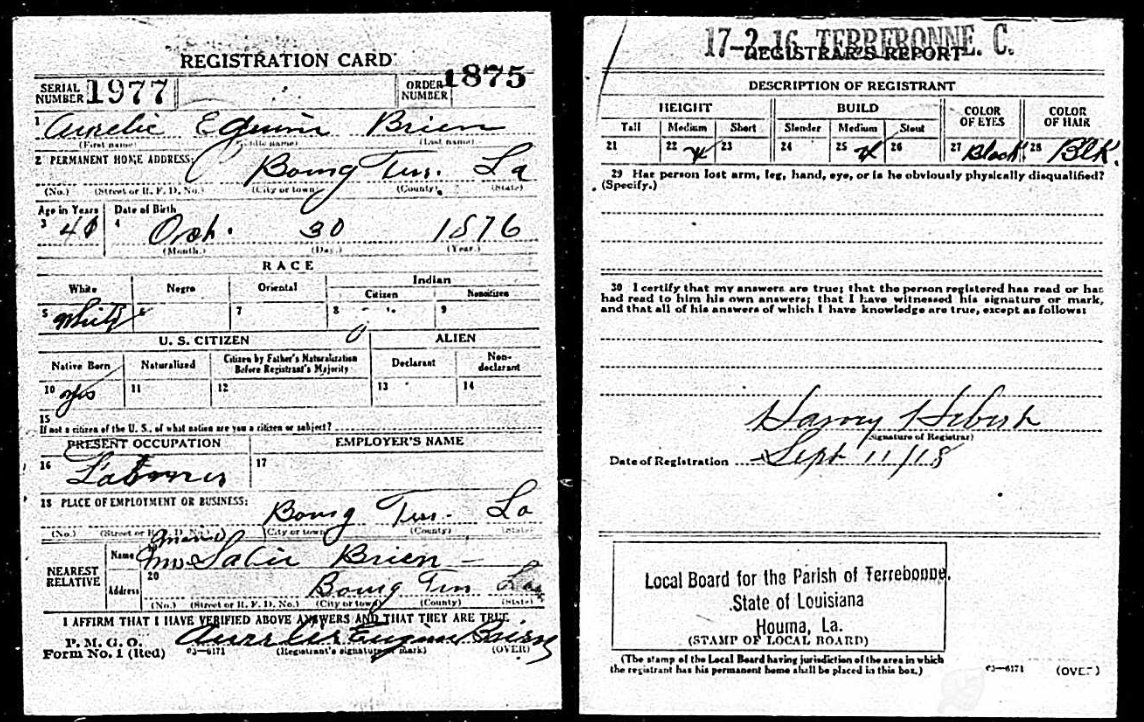 REGISTRATION CARD
SERIAL NUMBER 1977 ORDER NUMBER 1875
1 Aurelie Brien
(First name) (Middle name) (Last name)
2 PERMANENT HOME ADDRESS:
Bourg Terr. La
(No.) (Street or R. F. D. No.) (City or town) (County) (State)
Age in Years Date of Birth
3 4 30 1876
(Month.) (Day.) (Year.)
RACE
White Negro Oriental Indian
Citizen Noncitizen
5 White 6 7 8 9
U. S. CITIZEN ALIEN
Native Born Naturalized Citizen by Father's Naturalization Before Registrant's Majority Declarant Non-declarant
10 yes 11 12 13 14
15
If not a citizen of the U. S., of what nation are you a citizen or subject?
PRESENT OCCUPATION EMPLOYER'S NAME
16 Laborer 17
18 PLACE OF EMPLOYMENT OR BUSINESS:
Bourg Terr. La
(No.) (Street or R. F. D. No.) (City or town) (County) (State)
NEAREST RELATIVE
Name Brien
Address 20 Bourg Terr La
(No.) (Street or R. F. D. No.) (City or town) (County) (State)
I AFFIRM THAT I HAVE VERIFIED ABOVE ANSWERS AND THAT THEY ARE TRUE
P. M. G. O.
Form No. 1 (Red) 03—6171 (Registrant's signature or mark) (OVER)
17-2-16 TERREBONNE. C.
REGISTRAR'S REPORT
DESCRIPTION OF REGISTRANT
HEIGHT BUILD COLOR OF EYES COLOR OF HAIR
Tall Medium Short Slender Medium Stout
21 22 x 23 24 25 x 26 27 Black 28 Blk.
29 Has person lost arm, leg, hand, eye, or is he obviously physically disqualified?
(Specify.)
30 I certify that my answers are true; that the person registered has read or has
had read to him his own answers; that I have witnessed his signature or mark,
and that all of his answers of which I have knowledge are true, except as follows:
Harry Hebert
(Signature of Registrar)
Date of Registration Sept 11/18
Local Board for the Parish of Terrebonne.
State of Louisiana
Houma, La.
(STAMP OF LOCAL BOARD)
(The stamp of the Local Board having jurisdiction of the area in which
the registrant has his permanent home shall be placed in this box.)
03—6171 (OVER)